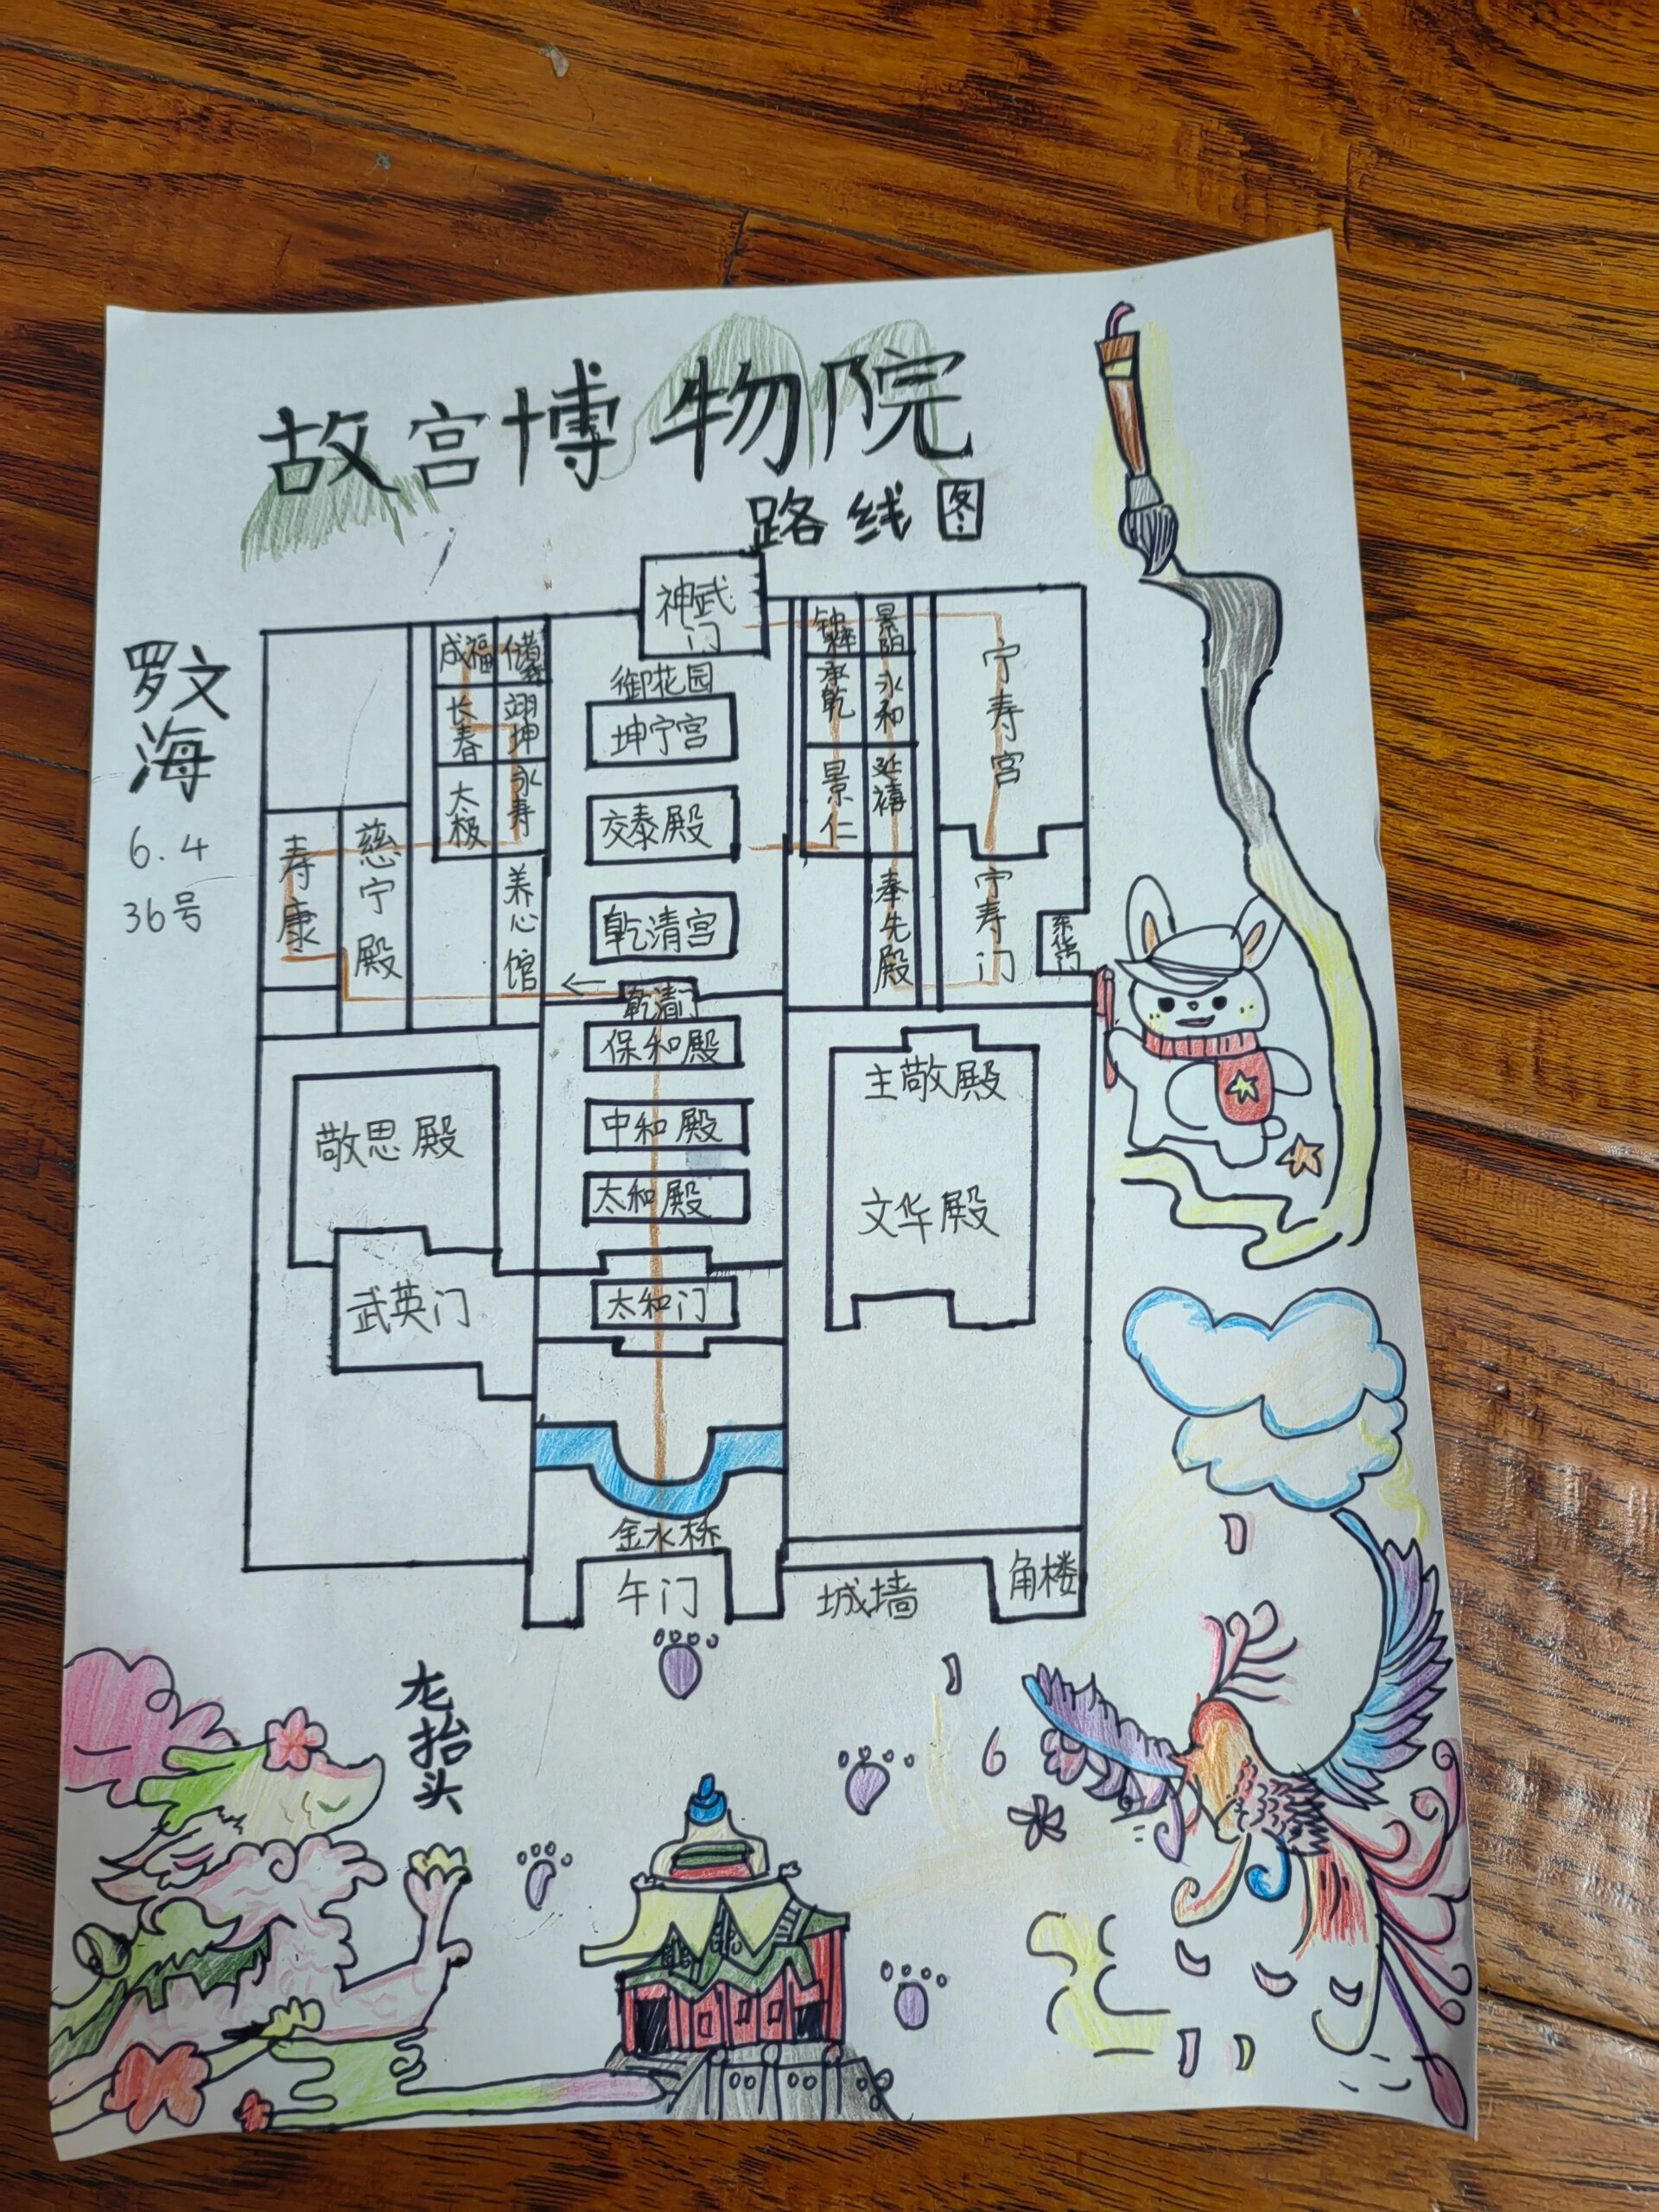 故宫博物院
路线图
罗文海
6.4
36号
神武门
御花园
坤宁宫
交泰殿
乾清宫
乾清门
保和殿
中和殿
太和殿
太和门
金水桥
午门
城墙
角楼
成福
储
长春
翊坤
太极
永寿
养心馆
寿康
慈宁殿
敬思殿
武英门
钟粹
景阳
承乾
永和
景仁
延禧
奉先殿
宁寿宫
宁寿门
东华门
主敬殿
文华殿
龙抬头